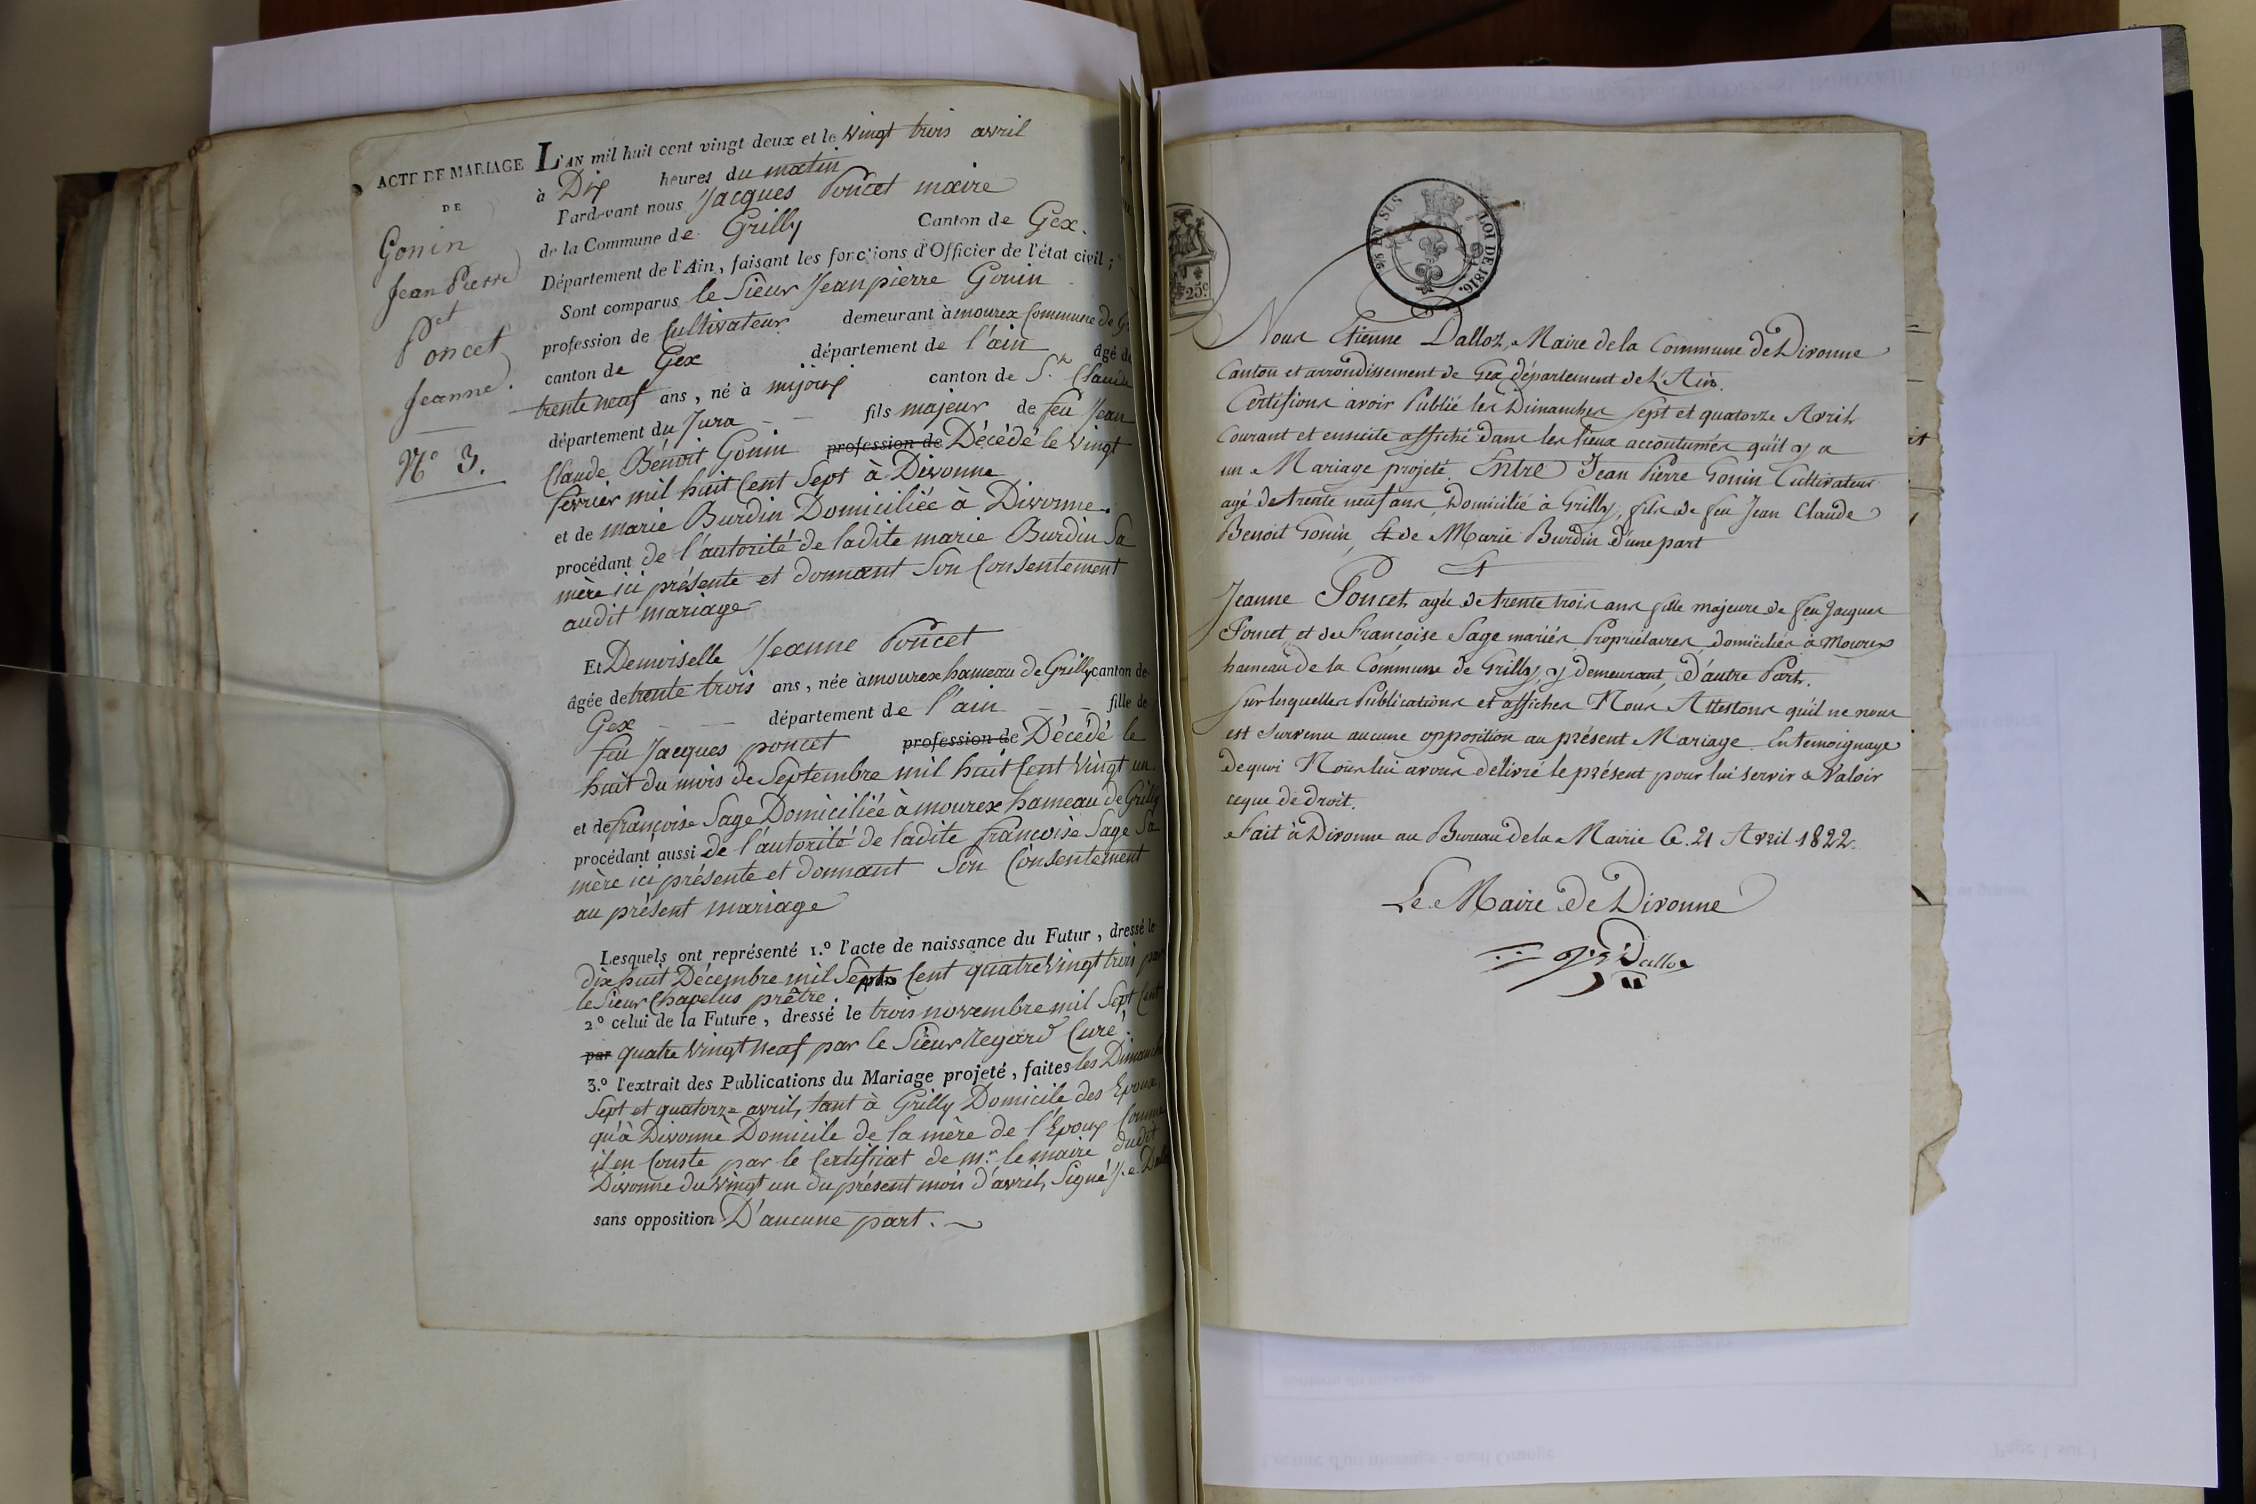 ACTE DE MARIAGE
DE
Gonin
Jean Pierre
et
Poncet
Jeanne.
N.o 3.
L'AN mil huit cent vingt deux et le vingt trois avril
à Dix heures du matin
Pardevant nous Jacques Poncet maire
de la Commune de Grilly Canton de Gex.
Département de l'Ain, faisant les fonctions d'Officier de l'état civil;
Sont comparus le Sieur Jeanpierre Gonin
profession de Cultivateur demeurant à mourex Commune de
canton de Gex département de l'ain âgé de
trente neuf ans, né à mijoux canton de S.t Claude
département du Jura — fils majeur de feu Jean
Claude Bénoit Gonin profession de Décédé le Vingt
fevrier mil huit Cent Sept à Divonne
et de marie Burdin Domiciliée à Divonne.
procédant de l'autorité de ladite marie Burdin Sa
mère ici présente et donnant Son Consentement
audit mariage
Et Demoiselle Jeanne Poncet
âgée de trente trois ans, née à mourex hameau de Grilly canton de
Gex — — département de l'ain — — fille de
feu Jacques poncet profession de Décédé le
huit du mois de Septembre mil huit Cent Vingt un
et de françoise Sage Domiciliée à mourex hameau de Grilly
procédant aussi de l'autorité de ladite françoise Sage Sa
mère ici présente et donnant Son Consentement
au présent mariage
Lesquels ont représenté 1.o l'acte de naissance du Futur, dressé le
dix huit Décembre mil Sept Cent quatre Vingt trois par
le Sieur Chapelus prêtre.
2.o celui de la Future, dressé le trois novembre mil Sept Cent
par quatre Vingt neuf par le Sieur Regard Curé.
3.o l'extrait des Publications du Mariage projeté, faites les Dimanche
Sept et quatorze avril, tant à Grilly Domicile des Epoux,
qu'à Divonne Domicile de la mère de l'Epoux Comme
il en Conste par le Certificat de m.r le maire dudit
Divonne du Vingt un du présent mois d'avril, Signé
sans opposition D'aucune part.
25c
EN SUS
LOI DE 1816.
Nous Etienne Dalloz, Maire de la Commune de Divonne
Canton et arrondissement de Gex, département de L'Ain.
Certifions avoir Publié les Dimanches Sept et quatorze Avril
Courant et ensuite affiché dans les lieux accoutumés qu'il y a
un Mariage projeté Entre Jean Pierre Gonin Cultivateur
agé de trente neuf ans Domicilié à Grilly, fils de feu Jean Claude
Benoit Gonin, & de Marie Burdin d'une part
&
Jeanne Poncet, agée de trente trois ans fille majeure de feu Jacques
Poncet et de Françoise Sage mariés Propriétaires domiciliés à Mourex
hameau de la Commune de Grilly, y demeurant, D'autre Part.
Sur lesquelles Publications et affiches Nous Attestons qu'il ne nous
est survenu aucune opposition au présent Mariage. En temoignage
de quoi Nous lui avons délivré le présent pour lui servir & Valoir
ce que de droit.
Fait à Divonne au Bureau de la Mairie le 21 Avril 1822.
Le Maire de Divonne
Dalloz